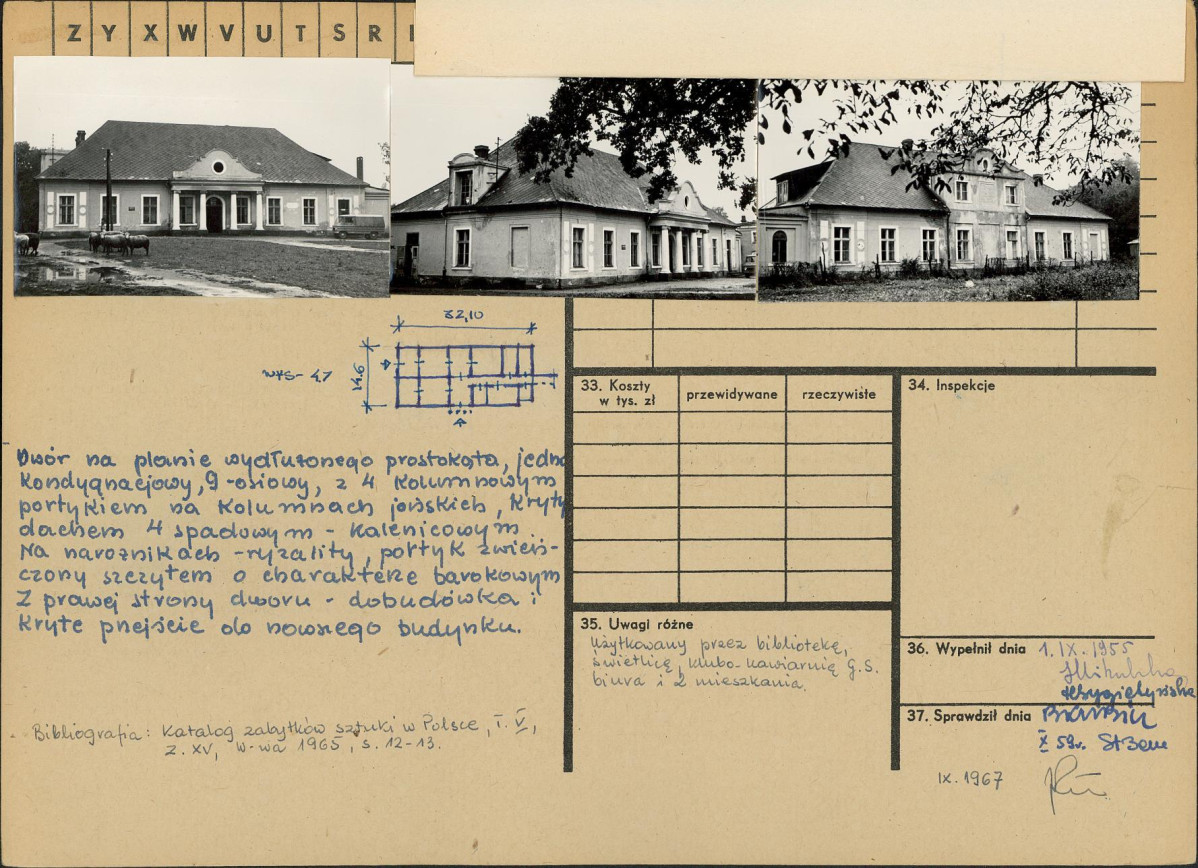 Z Y X W V U T S R
32,10
14.6
wys - 4,7
Dwór na planie wydłużonego prostokąta, jedno
kondygnacjowy, 9-osiowy, z 4 kolumnowym
portykiem na kolumnach jońskich, kryty
dachem 4 spadowym - kalenicowym
Na narożnikach - ryzality, portyk zwień-
czony szczytem o charakterze barokowym
Z prawej strony dworu - dobudówka i
kryte przejście do nowszego budynku.
Bibliografia: Katalog zabytków sztuki w Polsce, T. V,
z. XV, W-wa 1965, s. 12-13.
33. Koszty
w tys. zł
przewidywane
rzeczywiste
34. Inspekcje
35. Uwagi różne
Użytkowany przez bibliotekę,
świetlicę, klubo-kawiarnię G.S.
biura i 2 mieszkania.
36. Wypełnił dnia 1. IX. 1955
37. Sprawdził dnia
X 59r.
IX. 1967